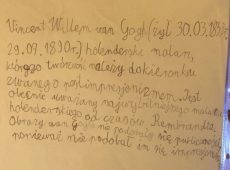 Vincent Willem van Gogh (żył 30.03.1853,
29.07.1890r.) holenderski malarz,
którego twórczość należy do kierunku
zwanego postimpresjonizmem. Jest
obecnie uważany najwybitniejszego malarza
holenderskiego od czasów Rembrandta.
Obrazy van Gogha nie podobały się publiczności
ponieważ nie podobał im się impresjonizm